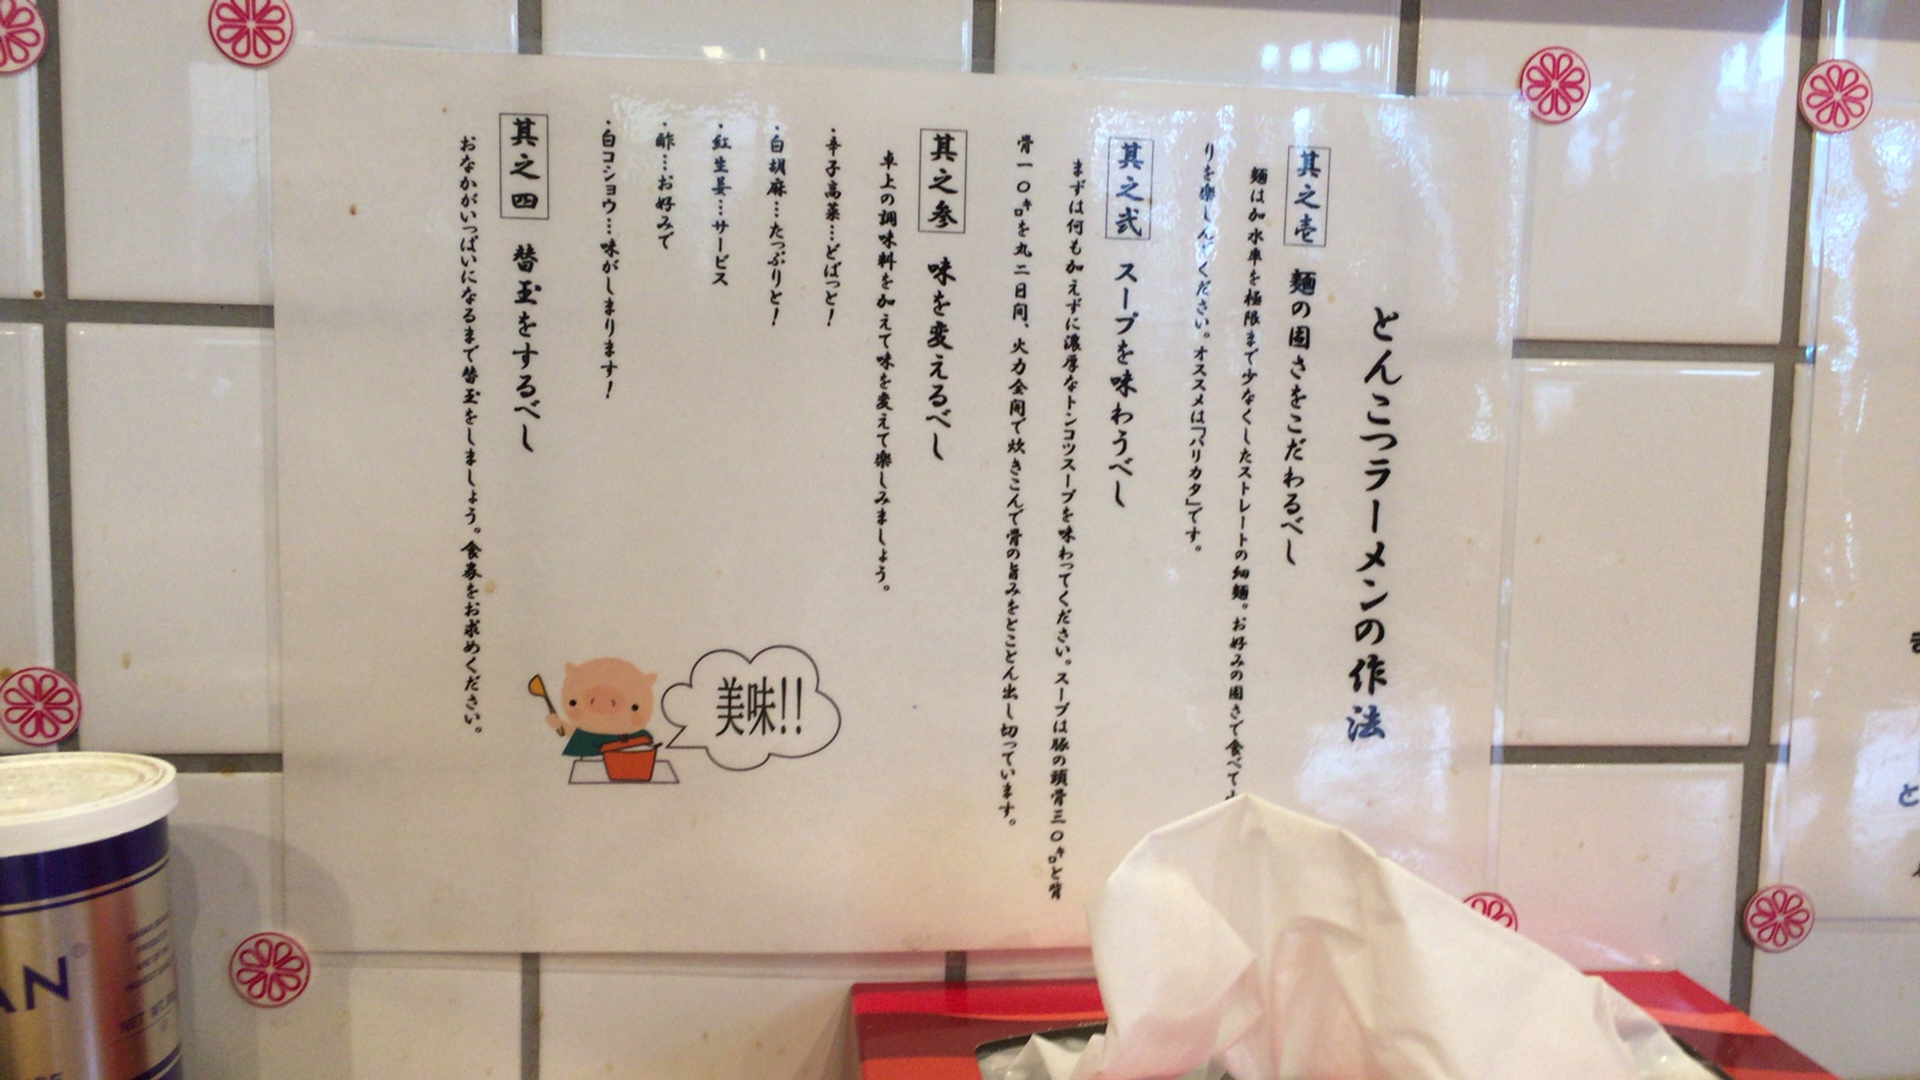 とんこつラーメンの作法
其之壱 麺の固さをこだわるべし
麺は加水率を極限まで少なくしたストレートの細麺。お好みの固さで食べて
りを楽しんでください。オススメは「バリカタ」です。
其之弐 スープを味わうべし
まずは何も加えずに濃厚なトンコツスープを味わってください。スープは豚の頭骨三〇㌔と背
骨一〇㌔を丸二日間、火力全開で炊きこんで骨の旨みをとことん出し切っています。
其之参 味を変えるべし
卓上の調味料を加えて味を変えて楽しみましょう。
・辛子高菜…どばっと!
・白胡麻…たっぷりと!
・紅生姜…サービス
・酢…お好みで
・白コショウ…味がしまります!
其之四 替玉をするべし
おなかがいっぱいになるまで替玉をしましょう。食券をお求めください。
美味!!
AN